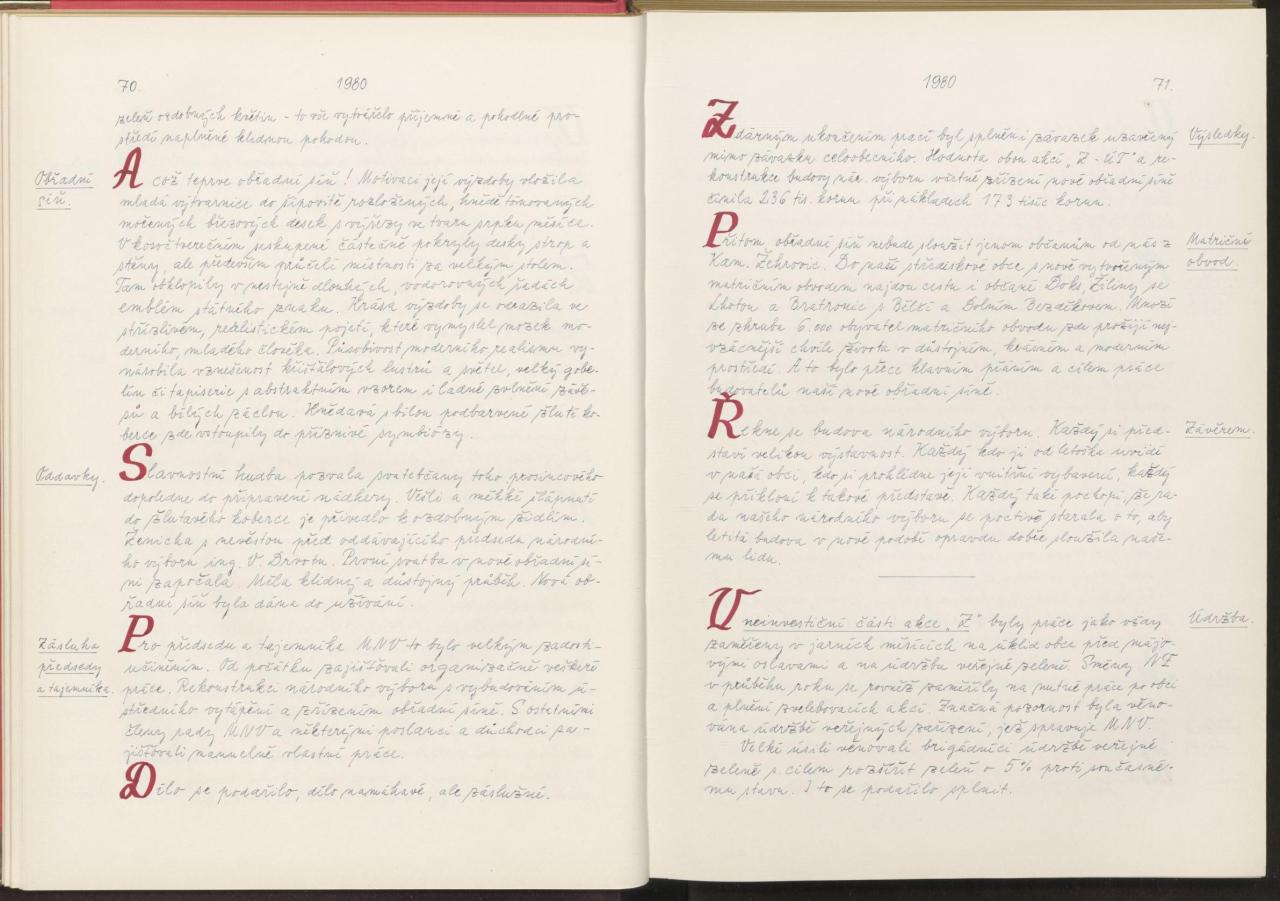 70. 1980
zeleň ozdobných květin - to vše vytvářelo příjemné a pohodlné pro-
středí naplněné klidnou pohodou.
Obřadní
síň.
A což teprve obřadní síň! Motivaci její výzdoby vložila
mladá výtvarnice do šípovitě rozložených, hnědě tónovaných
mořených březových desek s výřezy ve tvaru srpku měsíce.
V kosočtverečném seskupení částečně pokryly desky strop a
stěny, ale především průčelí místnosti za velkým stolem.
Tam obklopily v nestejně dlouhých, vodorovných řadách
emblém státního znaku. Krása výzdoby se odrazila ve
střízlivém, realistickém pojetí, které vymyslel mozek mo-
derního, mladého člověka. Působivost moderního realismu vy-
násobila vznešenost křišťálových lustrů a světel, velký gobe-
lín či tapiserie s abstraktním vzorem i ladné zvlnění závě-
sů a bílých záclon. Hnědavá s bílou podbarvené žluté ko-
berce zde vstoupily do příznivé symbiózy.
Oddavky.
Slavnostní hudba pozvala svatebčany toho prosincového
dopoledne do připravené nádhery. Vešli a měkké šlápnutí
do žlutavého koberce je přivedlo k ozdobným židlím.
Ženicha s nevěstou před oddávajícího předsedu národní-
ho výboru ing. V. Drvotu. První svatba v nové obřadní sí-
ni započala. Měla klidný a důstojný průběh. Nová ob-
řadní síň byla dána do užívání.
Zásluha
předsedy
a tajemníka.
Pro předsedu a tajemníka MNV to bylo velkým zadosti-
učiněním. Od počátku zajišťovali organizačně veškeré
práce. Rekonstrukci národního výboru s vybudováním ú-
středního vytápění a zřízením obřadní síně. S ostatními
členy rady MNV a některými poslanci a důchodci za-
jišťovali manuelně vlastní práce.
Dílo se podařilo, dílo namáhavé, ale záslužné.
1980 71.
Zdárným ukončením prací byl splněn i závazek uzavřený
Výsledky.
mimo závazku celoobecního. Hodnota obou akcí „Z - ÚT" a re-
konstrukce budovy nár. výboru včetně zřízení nové obřadní síně
činila 236 tis. korun při nákladech 173 tisíc korun.
Přitom obřadní síň nebude sloužit jenom občanům od nás z
Matriční
obvod.
Kam. Žehrovic. Do naší střediskové obce s nově vytvořeným
matričním obvodem najdou cestu i občané Doks, Žiliny se
Lhotou a Bratronic s Bělčí a Dolním Bezděkovem. Mnozí
ze zhruba 6.000 obyvatel matričního obvodu zde prožijí nej-
vzácnější chvíle života v důstojném, krásném a moderním
prostředí. A to bylo přece hlavním přáním a cílem práce
budovatelů naší nové obřadní síně.
Řekne se budova národního výboru. Každý si před-
Závěrem.
staví velikou výstavnost. Každý kdo ji od letoška uvidí
v naší obci, kdo si prohlédne její vnitřní vybavení, každý
se přikloní k takové představě. Každý také pochopí, že ra-
da našeho národního výboru se poctivě starala o to, aby
letitá budova v nové podobě opravdu dobře sloužila naše-
mu lidu.
V neinvestiční části akce „Z" byly práce jako vždy
Údržba.
zaměřeny v jarních měsících na úklid obce před májo-
vými oslavami a na údržbu veřejné zeleně. Směny NF
v průběhu roku se rovněž zaměřily na nutné práce po obci
a plnění zvelebovacích akcí. Značná pozornost byla věno-
vána údržbě veřejných zařízení, jež spravuje MNV.
Velké úsilí věnovali brigádníci údržbě veřejné
zeleně s cílem rozšířit zeleň o 5% proti současné-
mu stavu. I to se podařilo splnit.